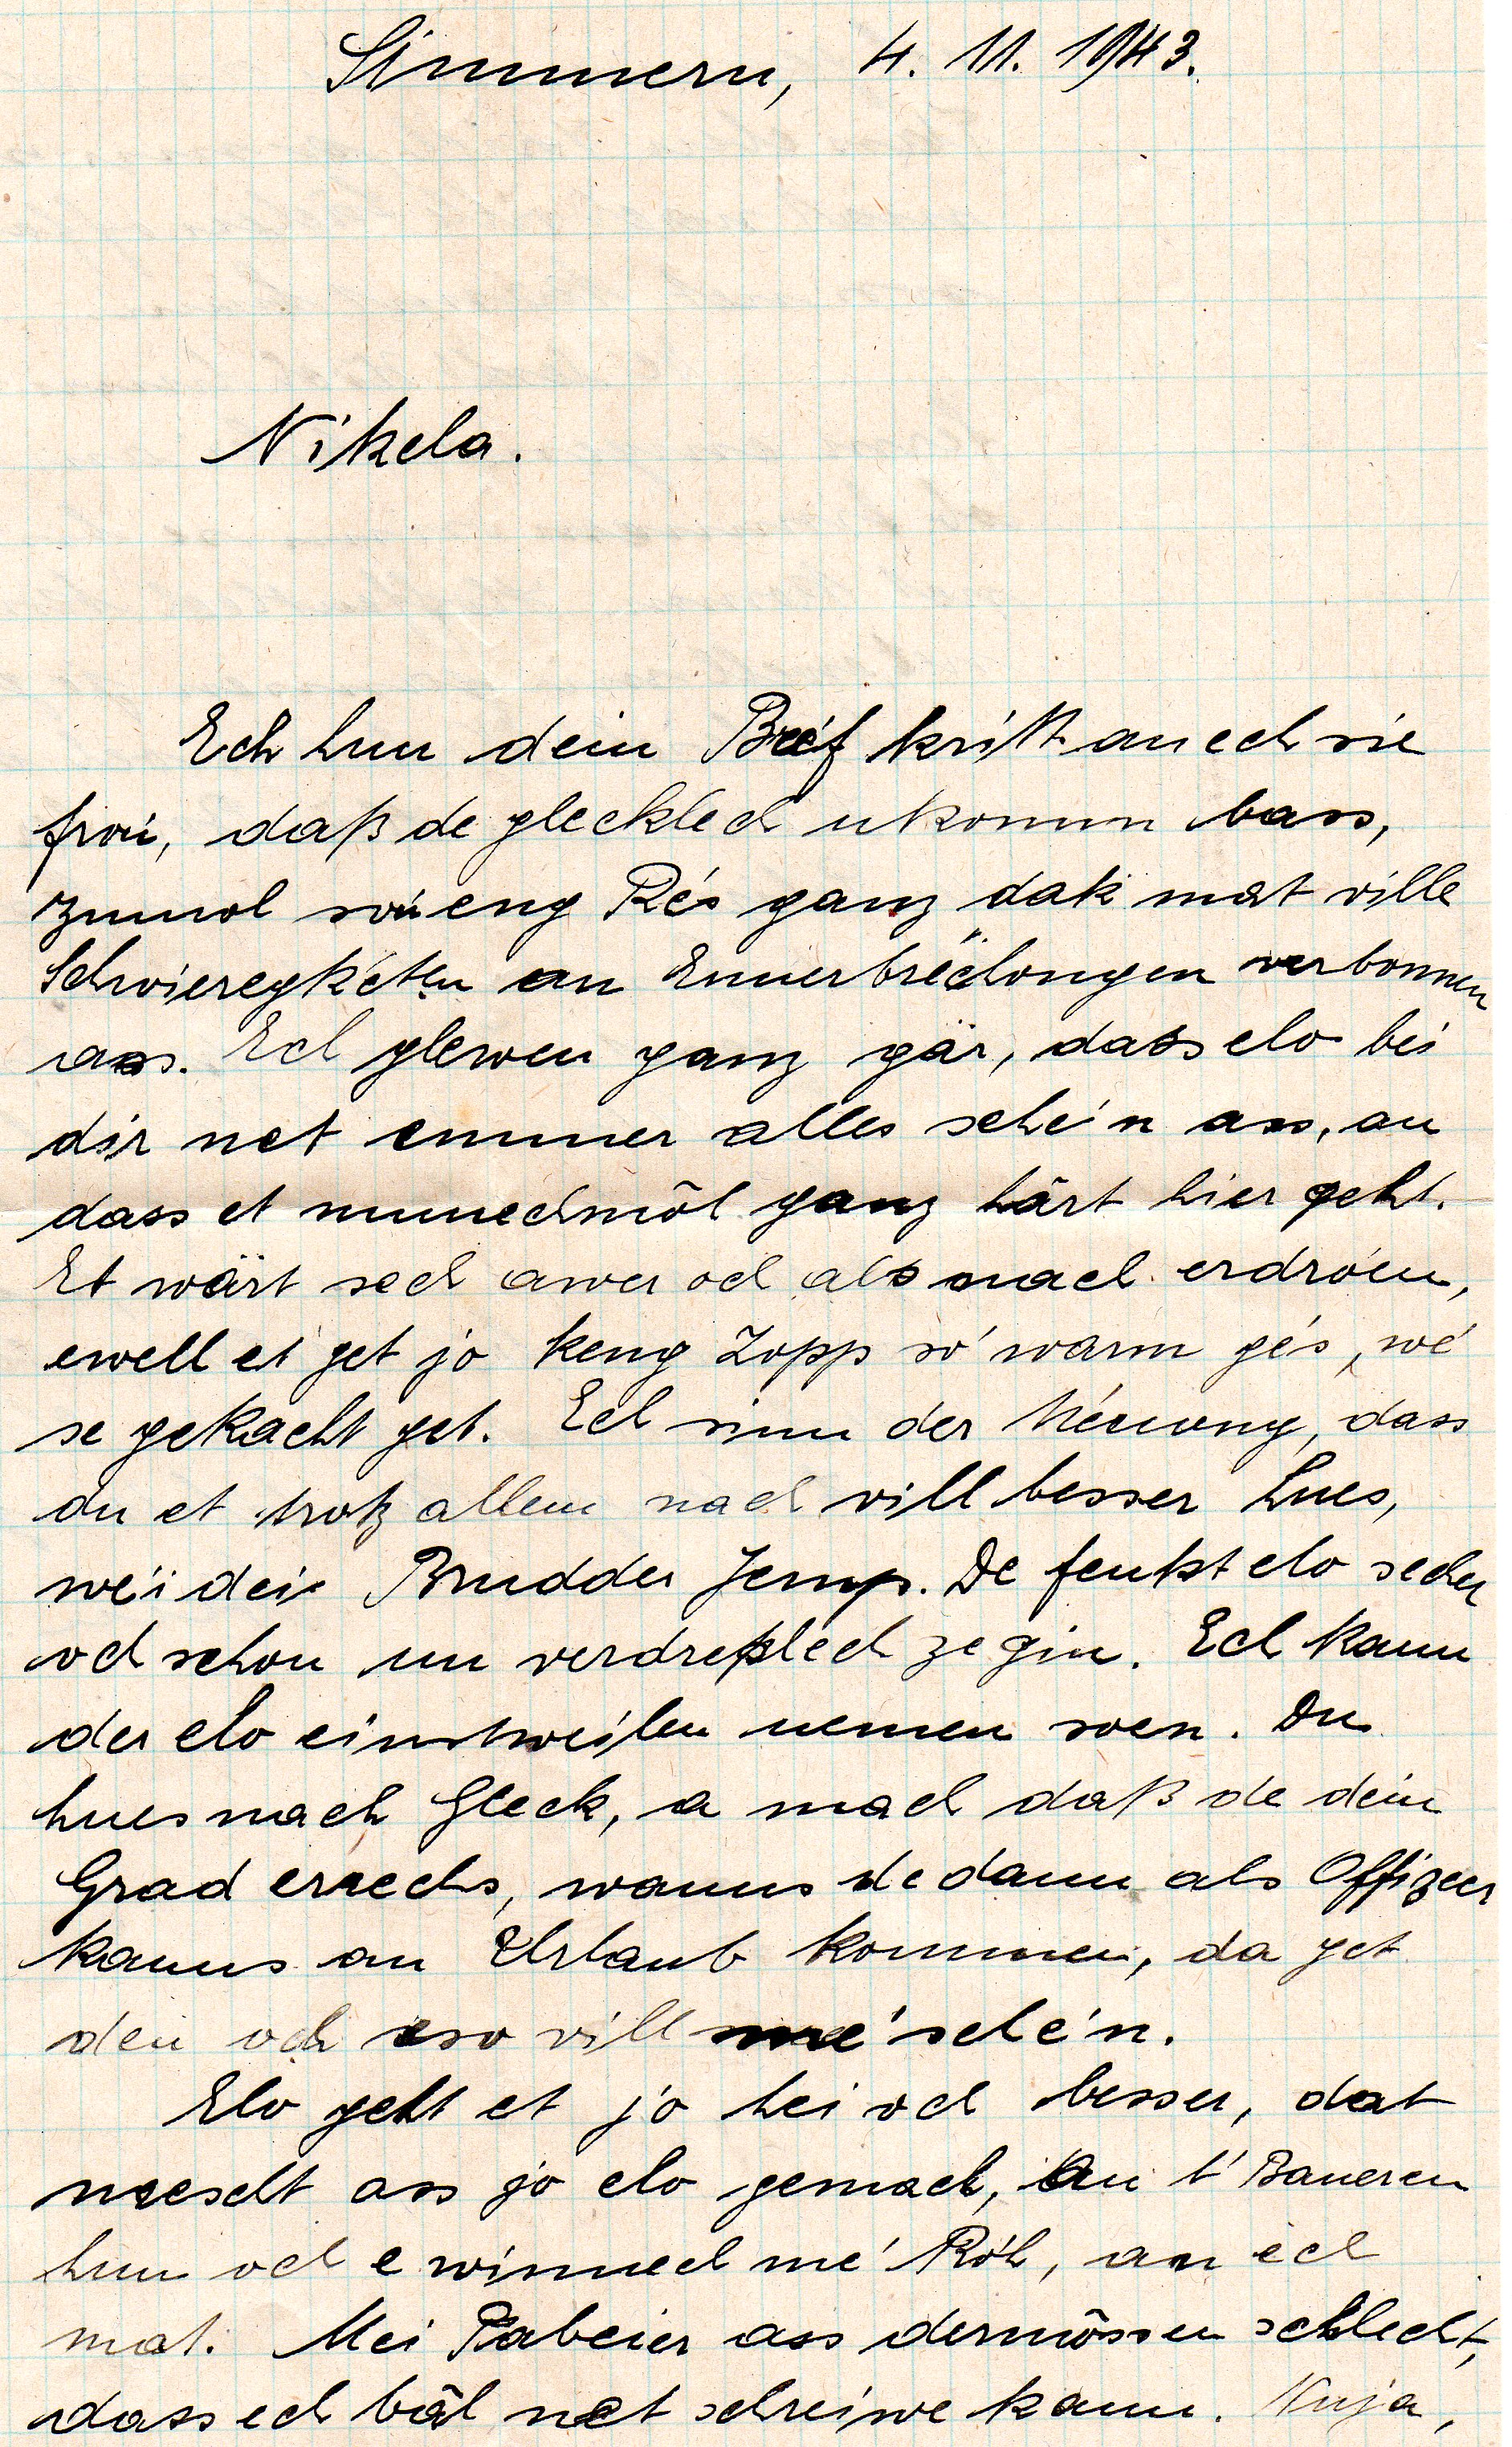 Simmern, 4. 11. 1943.
Nikela.
Ech hun dein Bréf kritt an ech sie
frou, daß de glecklech ukomm bass,
zumol sou eng Rés ganz dak mat ville
Schwieregkéten an Ennerbriechongen verbonnen
ass. Ech glewen ganz gär, dass elo bei
dir net emmer alles schéin ass, an
dass et munnechmôl ganz hârt hier geht.
Et wärt sech awer och als nach erdroen,
ewell et get jo keng Zopp so' warm gés, wé
se gekacht get. Ech sinn der Ménong, dass
du et trotz allem nach vill besser hues,
wéi dei Brudder Jemp. De fenkt elo secher
och schon un verdreßlech ze gin. Ech kann
der elo einstweilen nemen soen. Du
hues nach Gleck, a mach daß de dein
Grad errechs, wanns de dann als Offizeer
kanns an Urlaub kommen, da get
den och eso vill mé' sché'n.
Elo geht et jo hei och besser, dat
meescht ass jo elo gemach, an t' Baueren
hun och e winnech mé' Ro'h, an ech
mat. Mei Pabeier ass dermôssen schlecht,
dass ech bâl net schreiwe kann. Nuja,